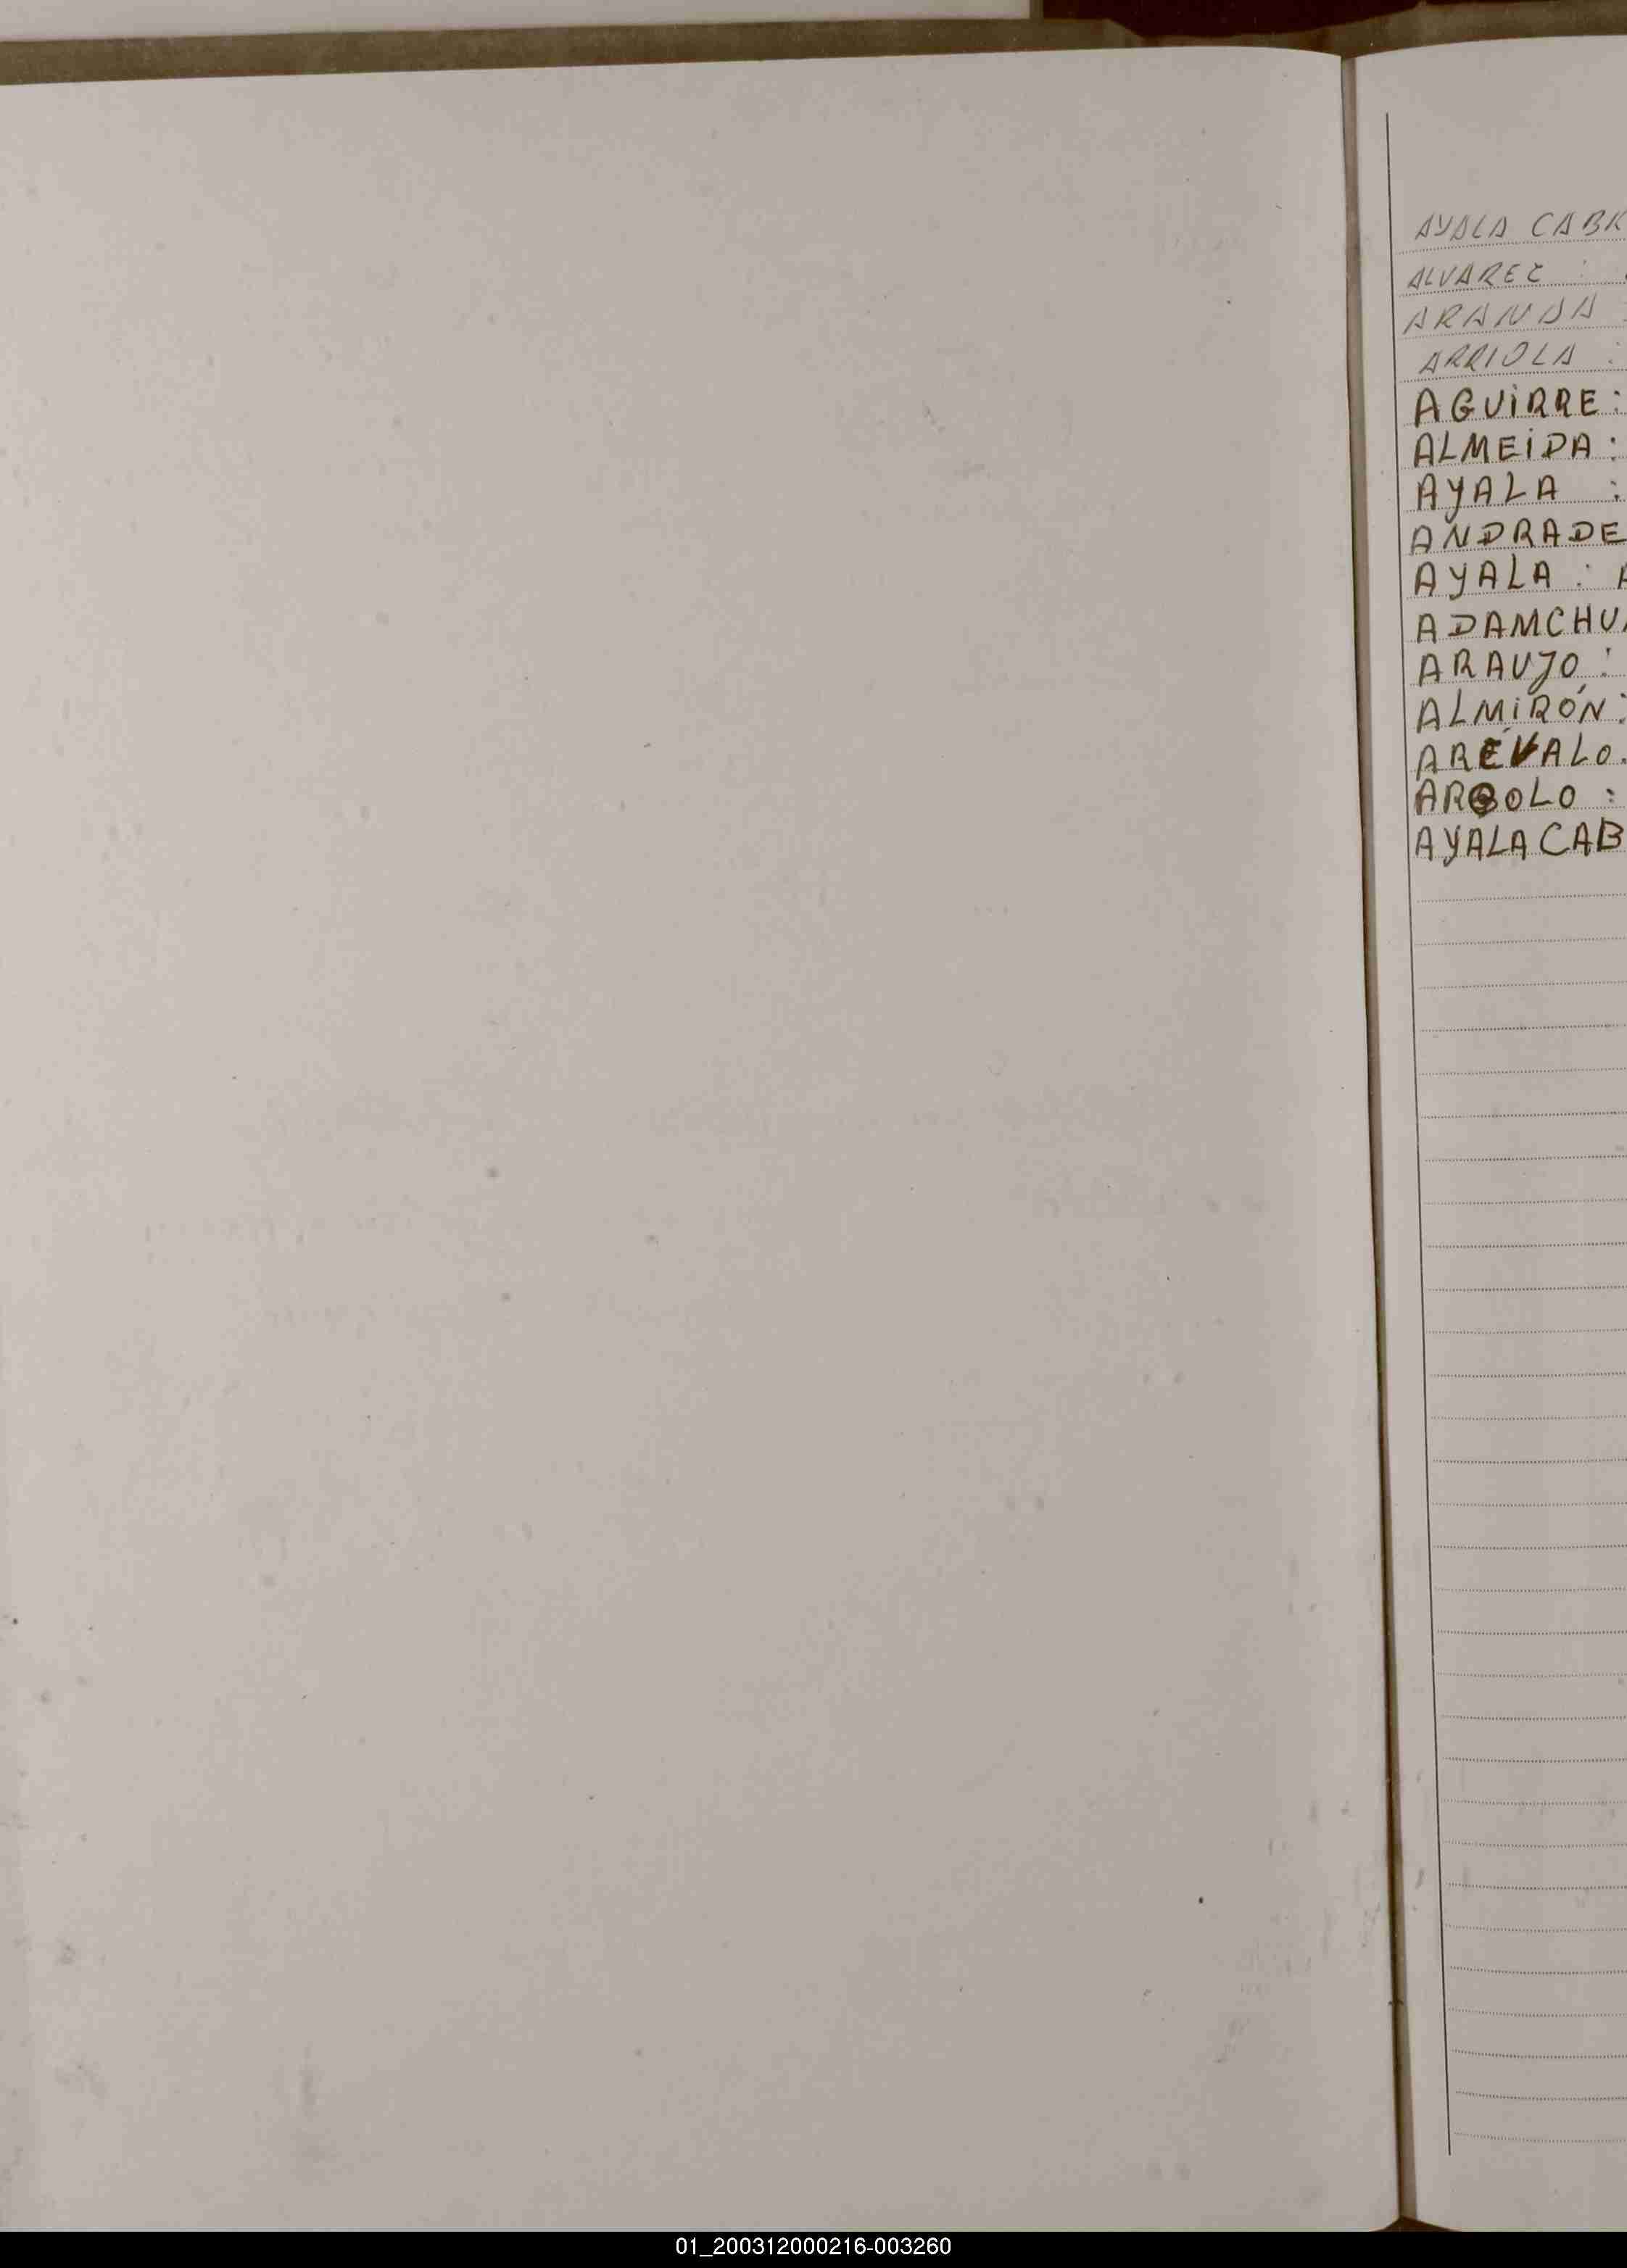 AYALA CABR
ALVAREZ :
ARANDA :
ARRIOLA :
AGUIRRE :
ALMEIDA :
AYALA :
ANDRADE
AYALA : A
ADAMCHU
ARAUJO :
ALMIRÓN :
ARÉVALO.
ARBOLO :
AYALA CAB
01_200312000216-003260